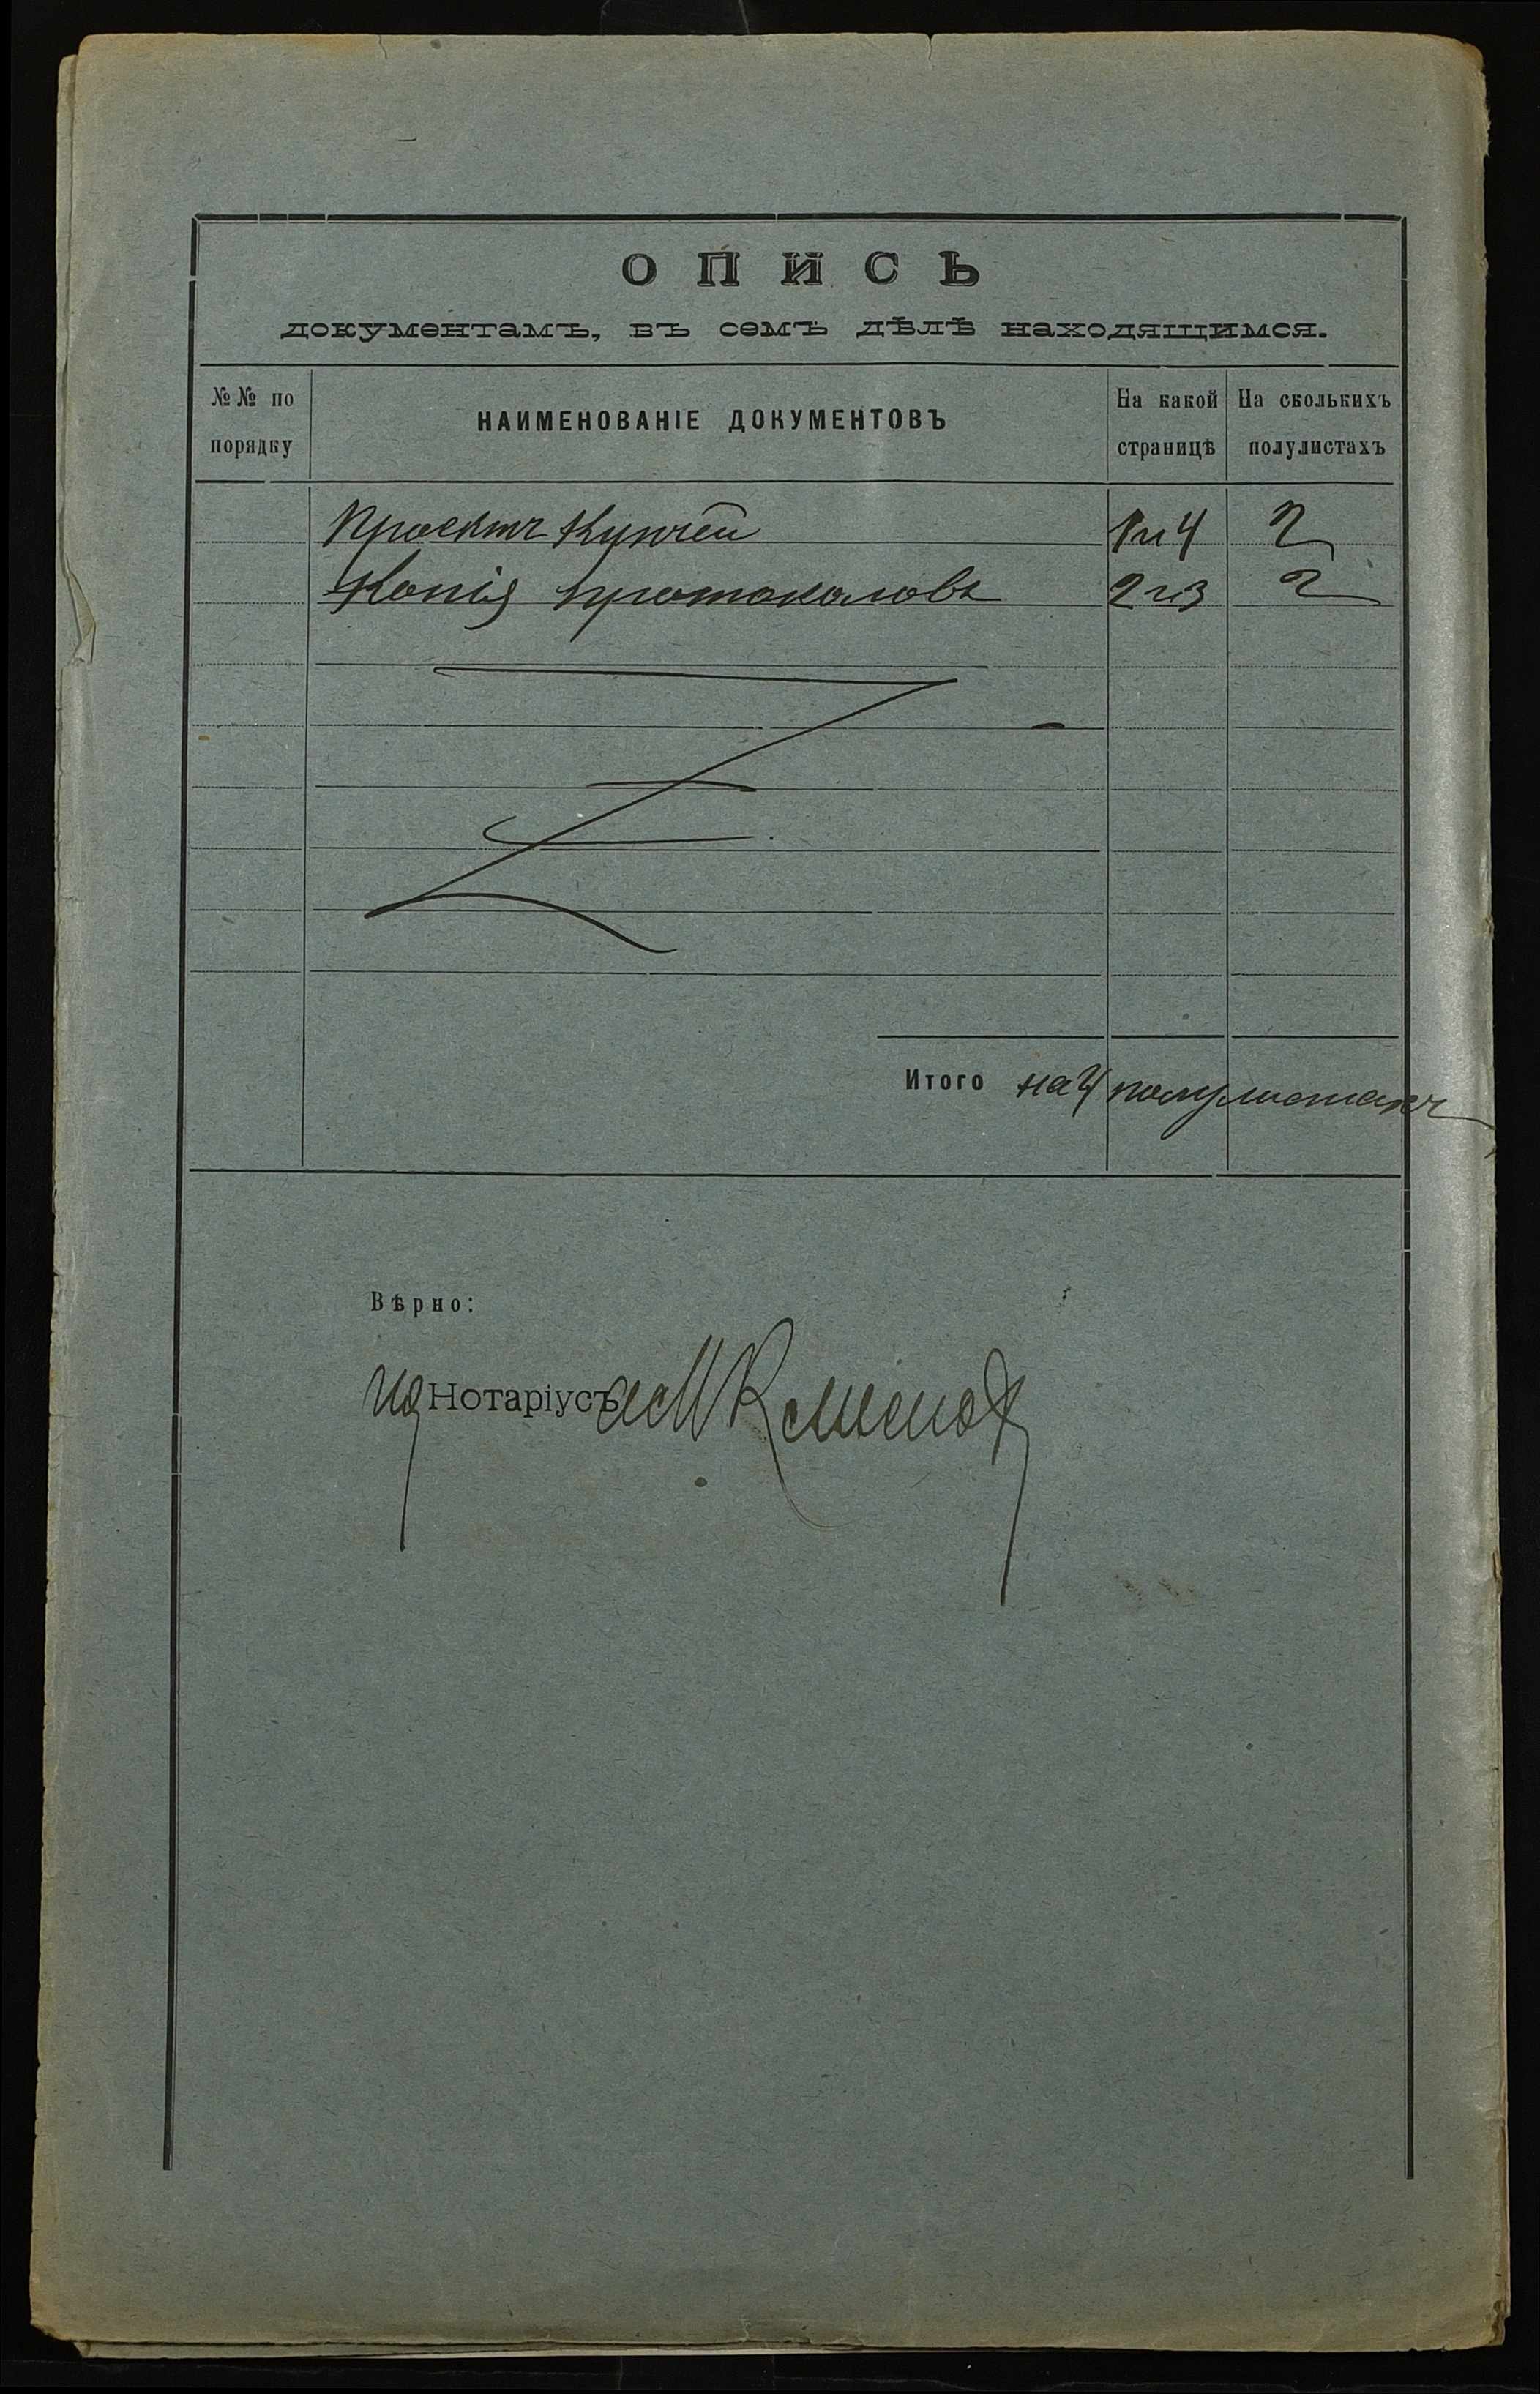 ОПИСЬ
документамъ, въ семъ дѣлѣ находящимся.
№№ по порядку
НАИМЕНОВАНІЕ ДОКУМЕНТОВЪ
На какой страницѣ
На сколькихъ полулистахъ
Проектъ Купчей 1 и 4 2
Копія протоколовъ 2 и 3 2
Итого на 4 полулистахъ
Вѣрно:
ид Нотаріусъ